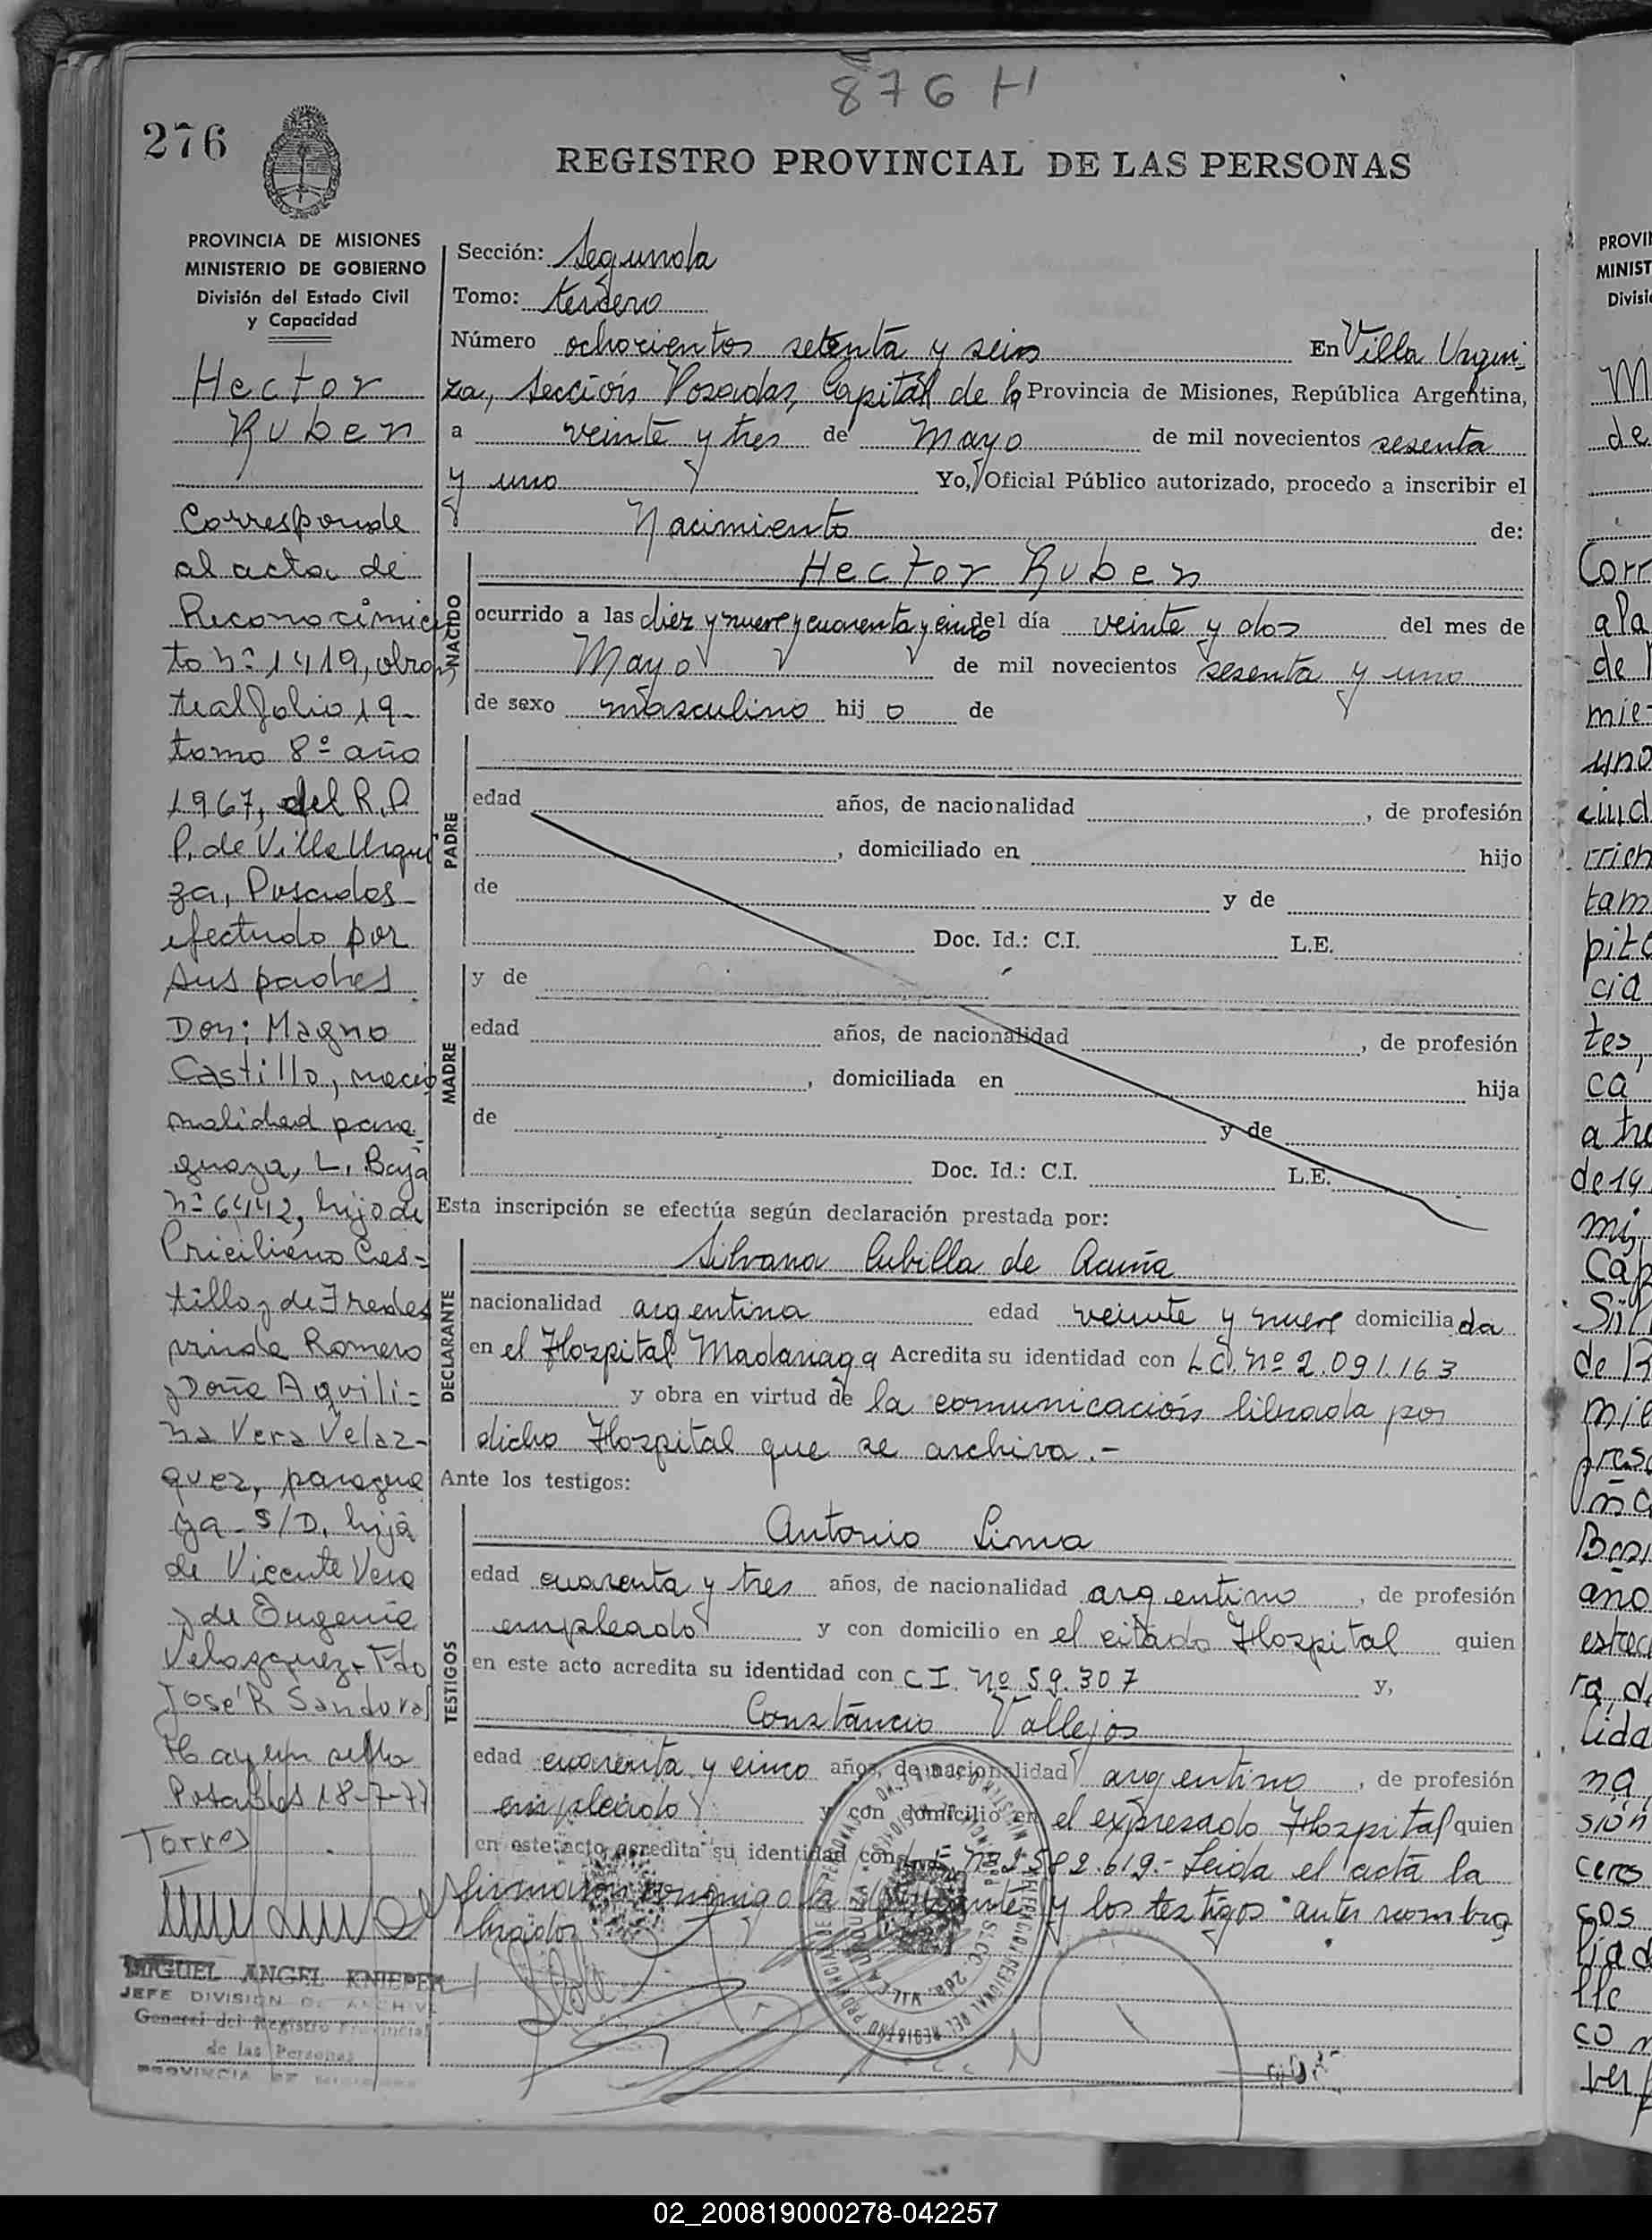 876 H
276
REGISTRO PROVINCIAL DE LAS PERSONAS
PROVINCIA DE MISIONES
MINISTERIO DE GOBIERNO
División del Estado Civil
y Capacidad
Hector
Ruben
Corresponde
al acta de
Reconocimien
to nº 1419, obran
te al folio 19-
tomo 8º año
1967, del R.P.
P. de Villa Urqui
za, Posadas
efectudo por
sus padres
Don: Magno
Castillo, nacio
nalidad para
guaya, L. Baja
nº 6442, hijo de
Priciliano Cas=
tillo y de Fredes
vinda Romero
y Doña Aquili=
na Vera Velaz-
quez, paragua
ya - S/D, hija
de Vicente Vera
y de Eugenia
Velazquez - Fdo
José R Sandoval
Hay un sello
Posadas 18-7-77
Torres
MIGUEL ANGEL KNIEPER
JEFE DIVISION DE ARCHIVO
General del Registro Provincial
de las Personas
PROVINCIA DE MISIONES
Sección: Segunda
Tomo: tercero
Número ochocientos setenta y seis En Villa Urqui-
za, Sección Posadas, Capital de la Provincia de Misiones, República Argentina,
a veinte y tres de Mayo de mil novecientos sesenta
y uno Yo, Oficial Público autorizado, procedo a inscribir el
Nacimiento de:
NACIDO
Hector Ruben
ocurrido a las diez y nueve y cuarenta y cinco del día veinte y dos del mes de
Mayo de mil novecientos sesenta y uno
de sexo masculino hijo de
PADRE
edad años, de nacionalidad , de profesión
, domiciliado en hijo
de y de
Doc. Id.: C.I. L.E.
MADRE
y de
edad años, de nacionalidad , de profesión
, domiciliada en hija
de y de
Doc. Id.: C.I. L.E.
Esta inscripción se efectúa según declaración prestada por:
DECLARANTE
Silvana Cubilla de Acuña
nacionalidad argentina edad veinte y nueve domiciliada
en el Hospital Madariaga Acredita su identidad con L.C. nº 2.091.163
y obra en virtud de la comunicación librada por
dicho Hospital que se archiva.-
Ante los testigos:
TESTIGOS
Antonio Lima
edad cuarenta y tres años, de nacionalidad argentino, de profesión
empleado y con domicilio en el citado Hospital quien
en este acto acredita su identidad con C.I. nº 59.307 y,
Constancio Vallejos
edad cuarenta y cinco años, de nacionalidad argentino, de profesión
empleado y con domicilio en el expresado Hospital quien
en este acto acredita su identidad con L.E. nº 2.582.619.- Leida el acta la
firmaron conmigo la declarante y los testigos antes nombra
PROVI
MINIST
Divisi
de
Corr
a la
de
mie-
uno
ciud
rrien
tam
pita
cia
tes,
ca
a tre
de 19
mi,
Cap
Sil
de R
mie
pres
año
estrec
ra, d
lida
na,
sión
ceres
cos
02_200819000278-042257